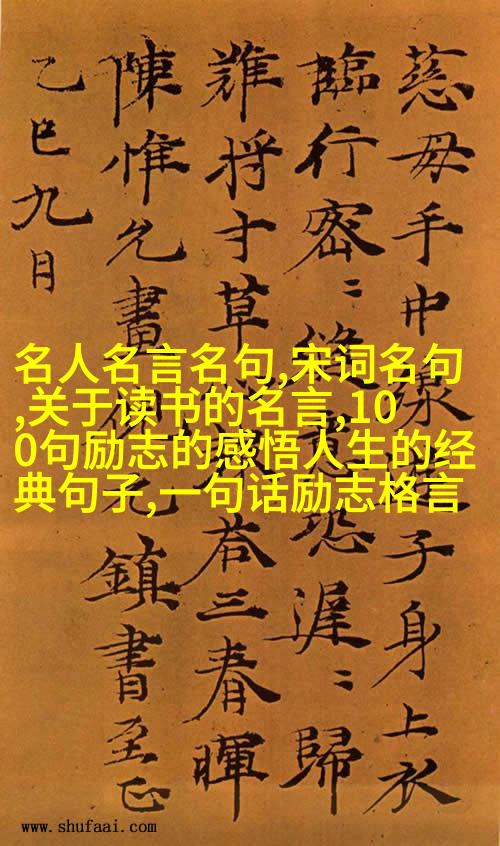 慈母手中線子身上衣
臨行密〻縫恐遲〻歸
難将寸草荅三春暉
陳惟允畫元鎮書至正
乙巳九月
名人名言名句,宋词名句
,关于读书的名言,10
0句励志的感悟人生的经
典句子,一句话励志格言
www.shufaai.com